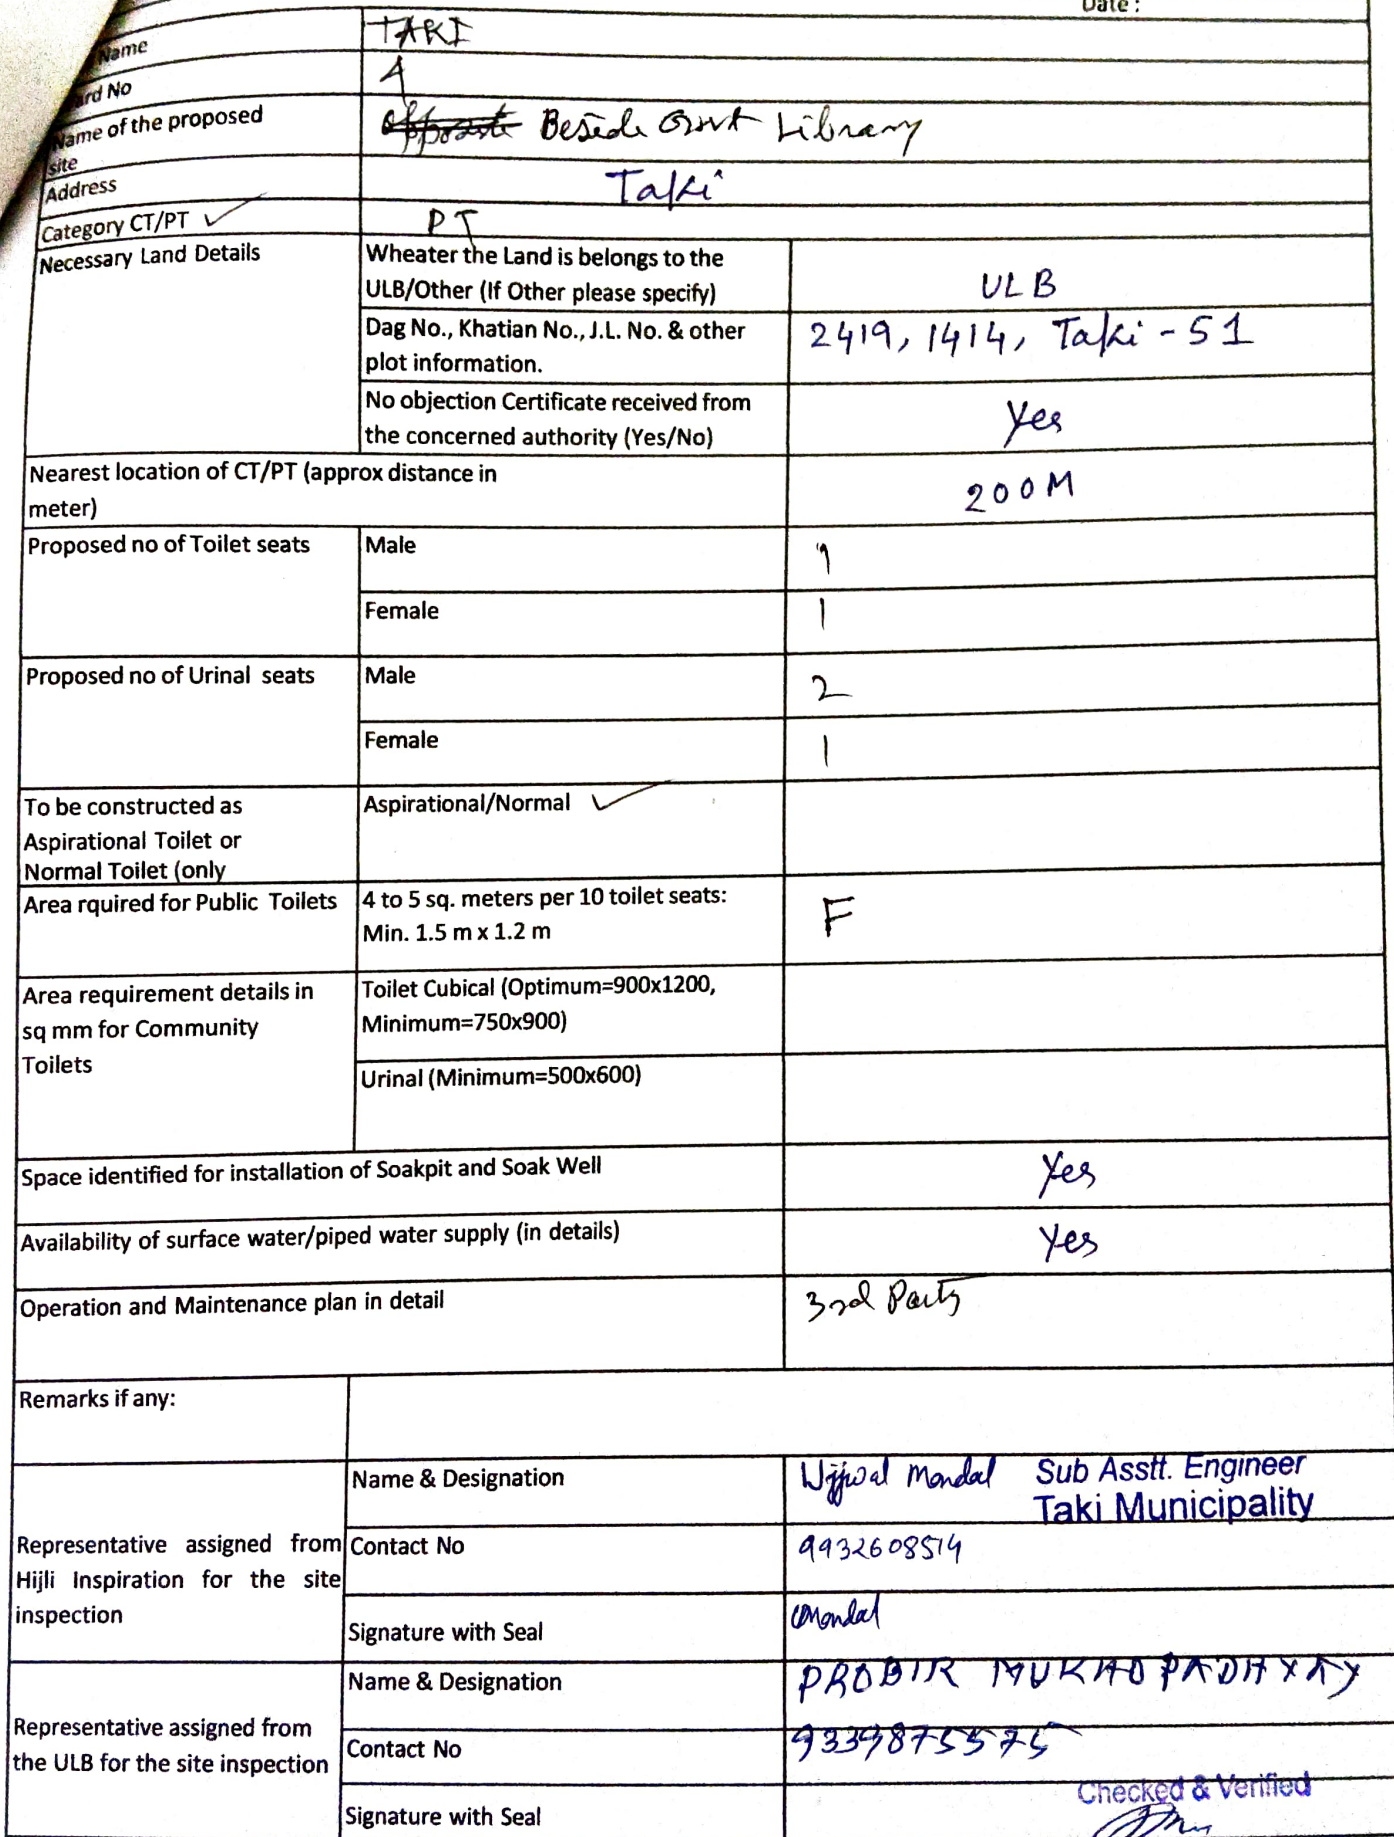 Date :
Name
TAKI
ard No
4
Name of the proposed
site
Opposite Beside Govt Library
Address
Taki
Category CT/PT ✓
PT
Necessary Land Details
Wheater the Land is belongs to the
ULB/Other (If Other please specify)
ULB
Dag No., Khatian No., J.L. No. & other
plot information.
2419, 1414, Taki - 51
No objection Certificate received from
the concerned authority (Yes/No)
Yes
Nearest location of CT/PT (approx distance in
meter)
200M
Proposed no of Toilet seats
Male
1
Female
1
Proposed no of Urinal seats
Male
2
Female
1
To be constructed as
Aspirational Toilet or
Normal Toilet (only
Aspirational/Normal ✓
Area rquired for Public Toilets
4 to 5 sq. meters per 10 toilet seats:
Min. 1.5 m x 1.2 m
F
Area requirement details in
sq mm for Community
Toilets
Toilet Cubical (Optimum=900x1200,
Minimum=750x900)
Urinal (Minimum=500x600)
Space identified for installation of Soakpit and Soak Well
Yes
Availability of surface water/piped water supply (in details)
Yes
Operation and Maintenance plan in detail
3rd Party
Remarks if any:
Representative assigned from
Hijli Inspiration for the site
inspection
Name & Designation
Ujjwal Mondal
Sub Asstt. Engineer
Taki Municipality
Contact No
9932608514
Signature with Seal
Mondal
Representative assigned from
the ULB for the site inspection
Name & Designation
PROBIR MUKHOPADHYAY
Contact No
9339875575
Signature with Seal
Checked & Verified